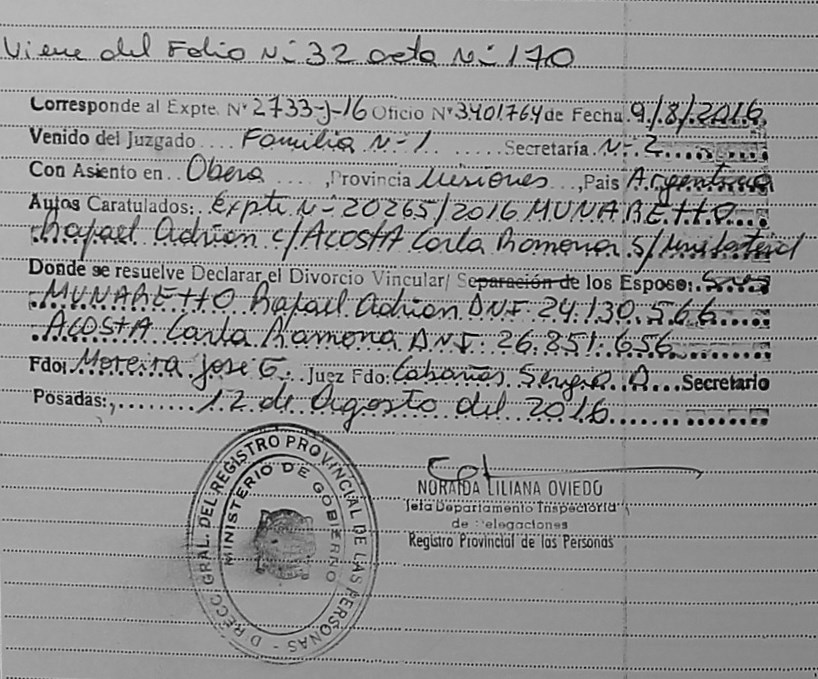 Viene del Folio N:32 acta N: 170
Corresponde al Expte. N° 2733-J-16 Oficio N° 3401764 de Fecha 9/8/2016
Venido del Juzgado Familia N-1 Secretaría N-2
Con Asiento en Obera, Provincia Misiones, Pais Argentina
Autos Caratulados: Expte N: 20265/2016 MUNARETTO
Rafael Adrian c/ACOSTA Carla Ramona s/Unilateral
Donde se resuelve Declarar el Divorcio Vincular/ Separación de los Esposos:
MUNARETTO Rafael Adrian DNI: 24.130.566
ACOSTA Carla Ramona DNI: 26.851.656
Fdo: Moreira Jose G. Juez Fdo: Cabañas Sergio A Secretario
Posadas:, 12 de Agosto del 2016
NORAIDA LILIANA OVIEDO
Jefa Departamento Inspectoría
de Delegaciones
Registro Provincial de las Personas
DIRECC. GRAL. DEL REGISTRO PROVINCIAL DE LAS PERSONAS -
MINISTERIO DE GOBIERNO